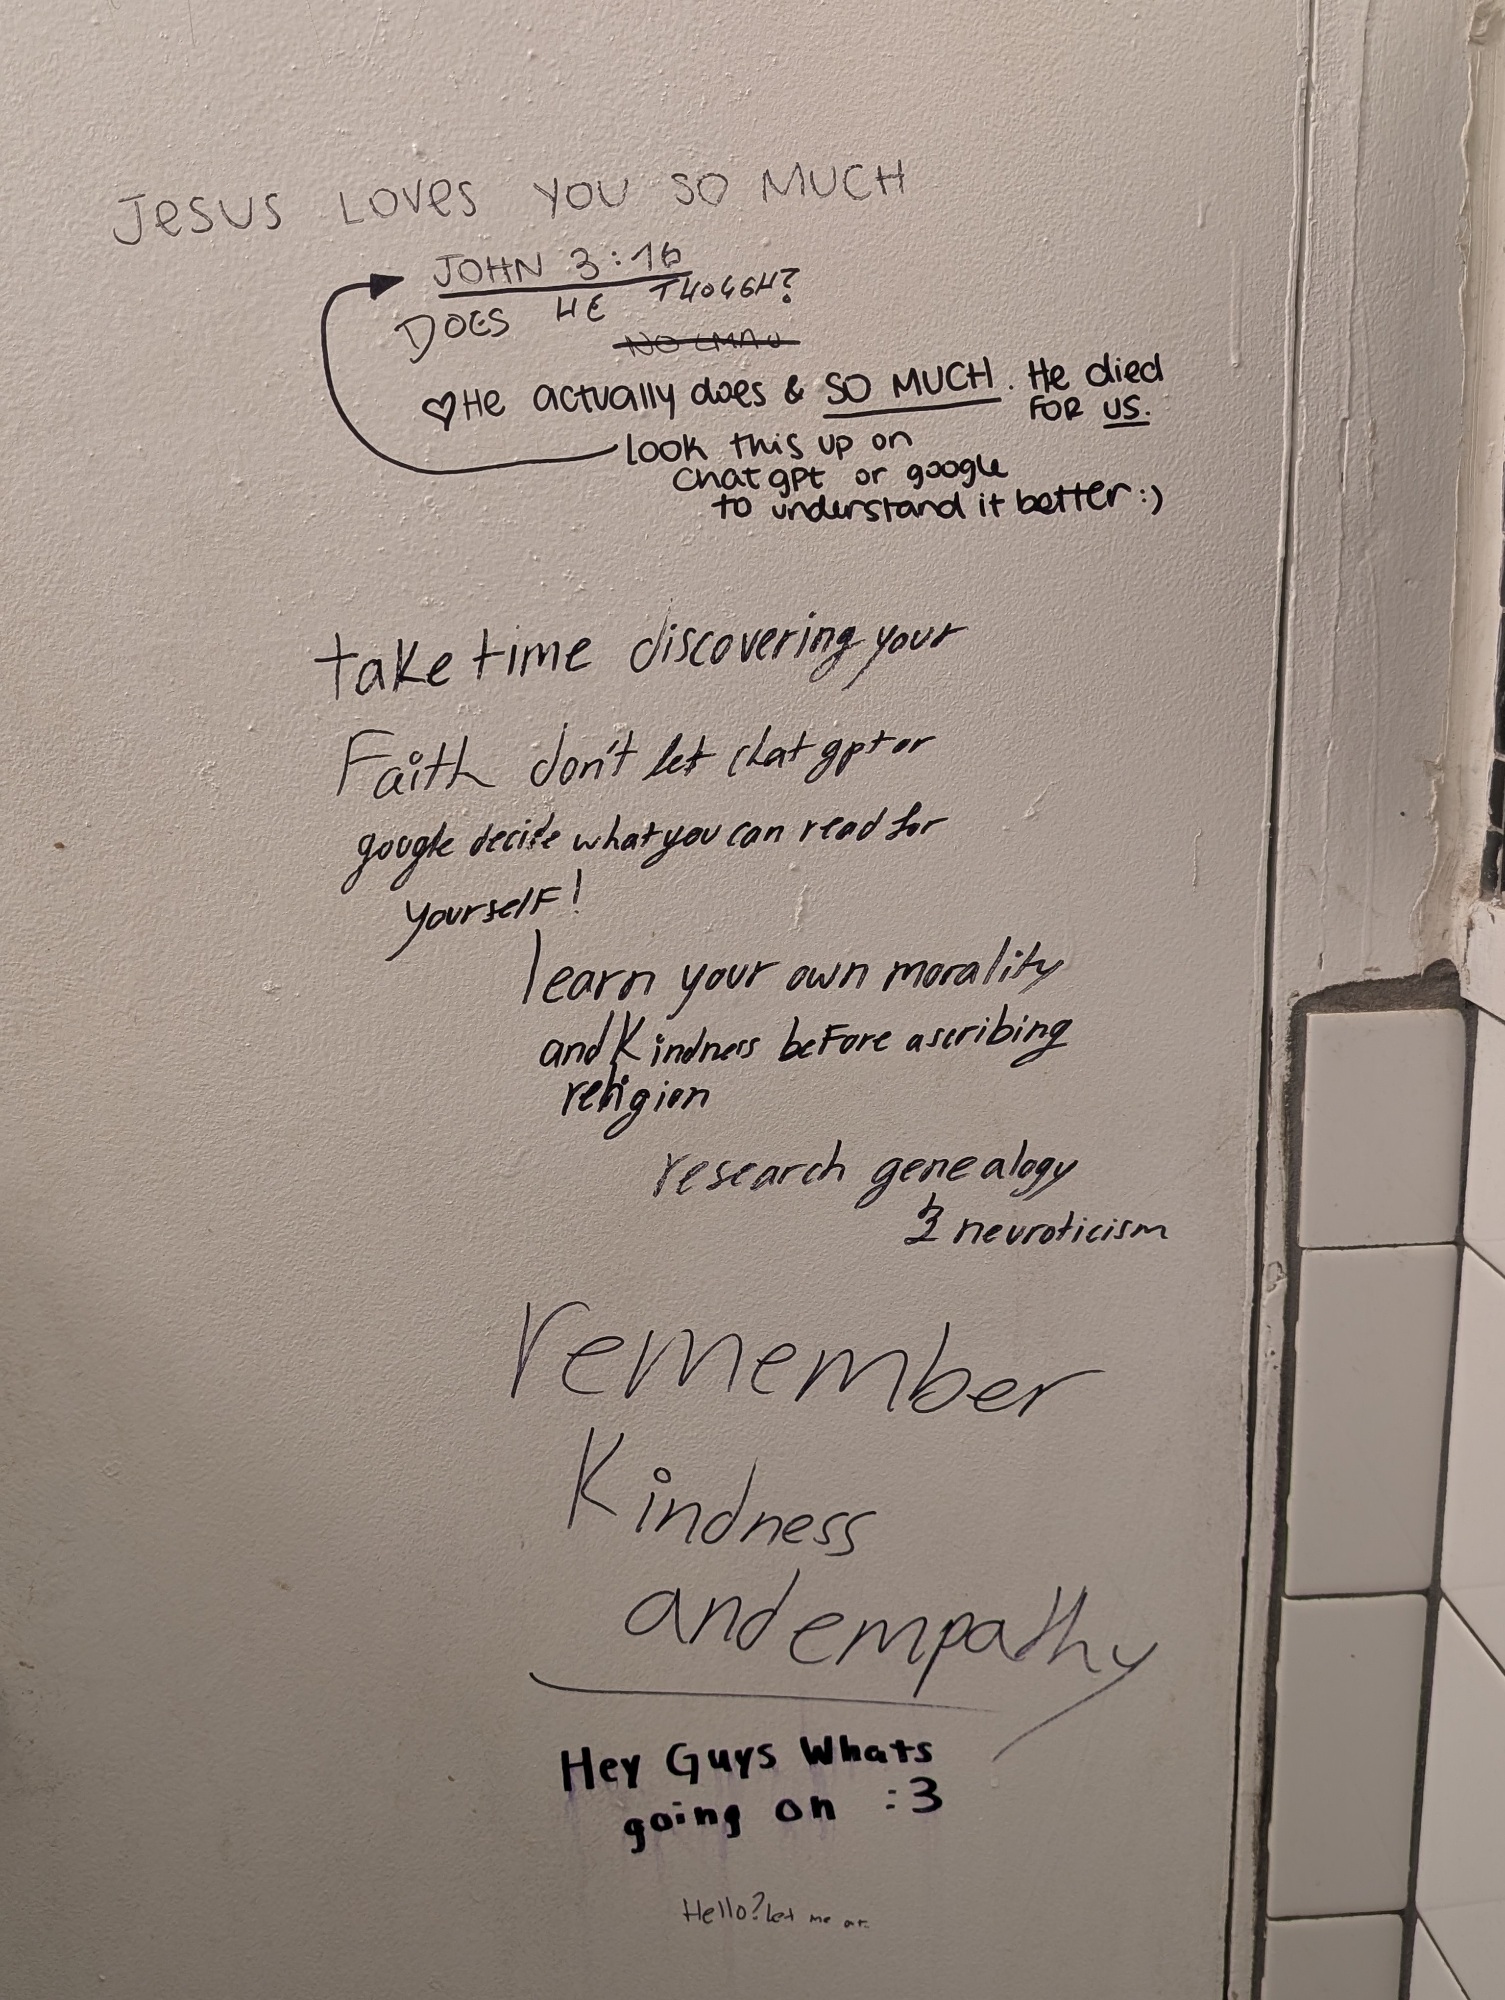 Jesus Loves YOU SO MUCH
JOHN 3:16
DOES HE THOUGH?
NO LMAO
♡He actually does & SO MUCH. He died
FOR US.
look this up on
chat gpt or google
to understand it better :)
take time discovering your
Faith don't let chat gpt or
google decide what you can read for
yourself!
learn your own morality
and Kindness before ascribing
religion
research genealogy
& neuroticism
remember
Kindness
and empathy
Hey Guys Whats
going on :3
Hello? Let me